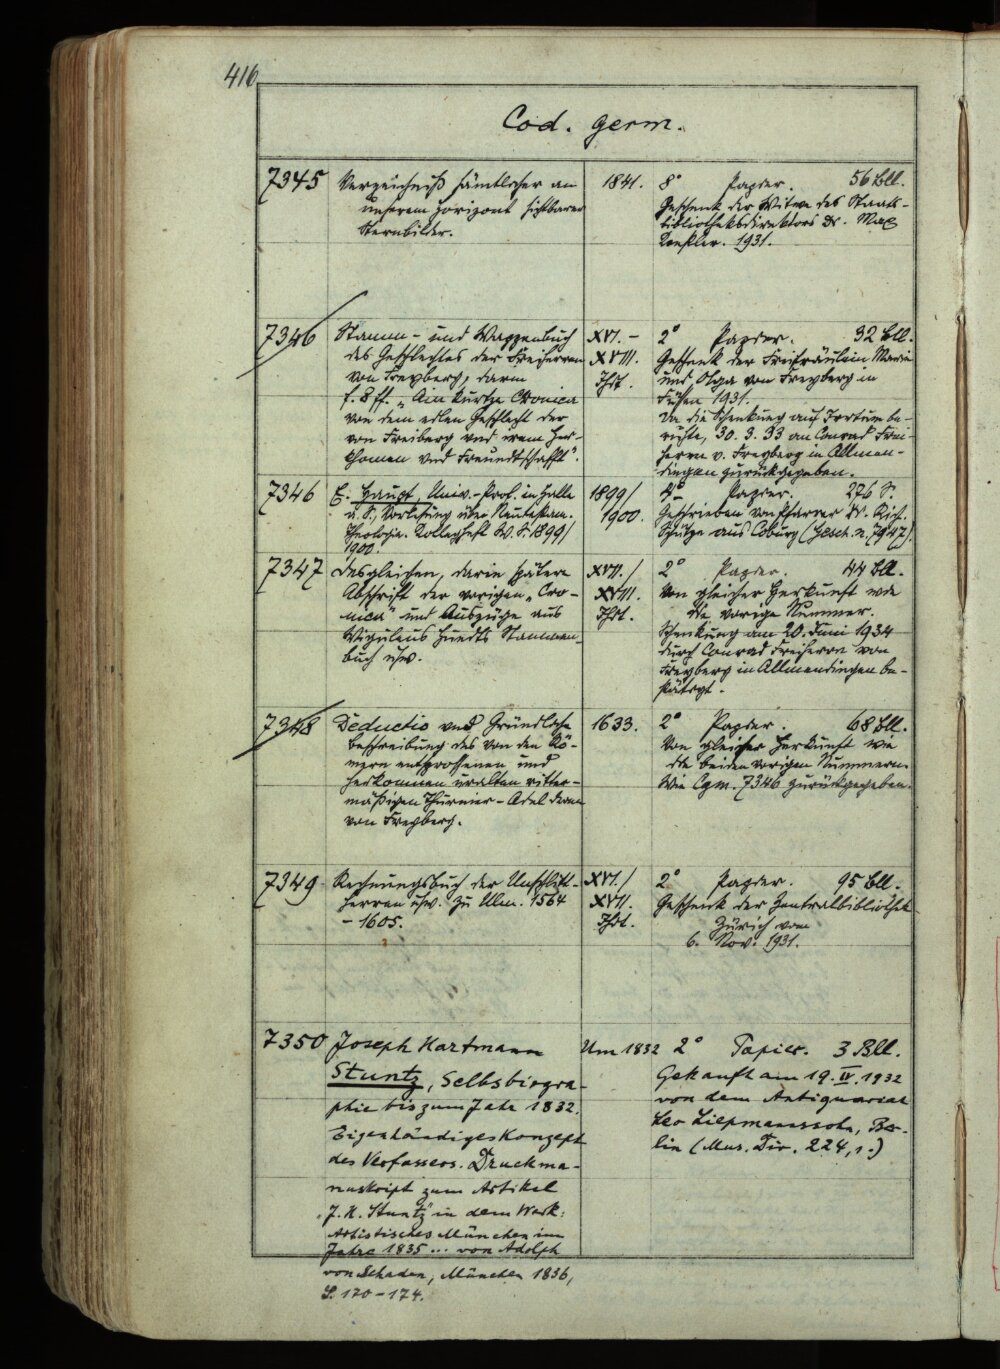 416
Cod. germ.
7345 Verzeichniß sämtlicher an 1841. 8° Papier. 56 Bll.
unserem Horizont sichtbaren Geschenk der Witwe des Staats-
Sternbilder. bibliotheksdirektors Dr. Max
1931.
7346 Stamm- und Wappenbuch XVI.- 2° Papier. 32 Bll.
des Geschlechtes der Freiherren XVIII. Geschenk der Freifräulein Marie
von Freyberg, darin Jhdt. und Olga von Freyberg in
f. 8 ff. „Ain kurtze Cronica 1931.
von dem edlen Geschlecht der Da die Schenkung auf Irrtum be-
von Freiberg und irem Her- ruhte, 30. 3. 33 an Conrad Frei-
khomen und Freundtschafft". herrn v. Freyberg in Allmen-
dingen zurückgegeben.
7346 E. Haupt, Univ.-Prof. in Halle 1899/ 4° Papier. 276 S.
a. S., Vorlesung über Neutestam. 1900. Geschrieben von Pfarrer Dr. Rich.
Theologie. Kollegheft W. S. 1899/ aus Coburg (Gesch. n. 7947).
1900.
7347 Desgleichen, darin spätere XVII./ 2° Papier. 44 Bll.
Abschrift der vorigen „Cro- XVIII. Von gleicher Herkunft wie
nica" und Auszüge aus Jhdt. die vorige Nummer.
Wiguleus Hundts Stammen- Schenkung am 20. Juni 1934
buch usw. durch Conrad Freiherrn von
Freyberg in Allmendingen be-
stätigt.
7348 Deductio und Gründliche 1633. 2° Papier. 68 Bll.
Beschreibung des von den Rö- Von gleicher Herkunft wie
mern entsprossenen und die beiden vorigen Nummern.
Herkommen uralten ritter- Wie Cgm. 7346 zurückgegeben.
mäßigen Thurnier-Adel deren
von Freyberg.
7349 Rechnungsbuch der Unschlitt- XVI./ 2° Papier. 95 Bll.
herren usw. zu Ulm. 1564 XVII. Geschenk der Zentralbibliothek
- 1605. Jhdt. Zürich vom
6. Nov. 1931.
7350 Joseph Hartmann Um 1832 2° Papier. 3 Bll.
Stuntz, Selbstbiogra- Gekauft am 19. IV. 1932
phie bis zum Jahr 1832. von dem Antiquariat
Eigenhändiges Konzept Leo Liepmannssohn, Ber-
des Verfassers. Druckma- lin (Mus. Dir. 224, 1.)
nuskript zum Artikel
„J. H. Stuntz" in dem Werk:
Artistisches München im
Jahre 1835 ... von Adolph
von Schaden, München 1836,
S. 170-174.